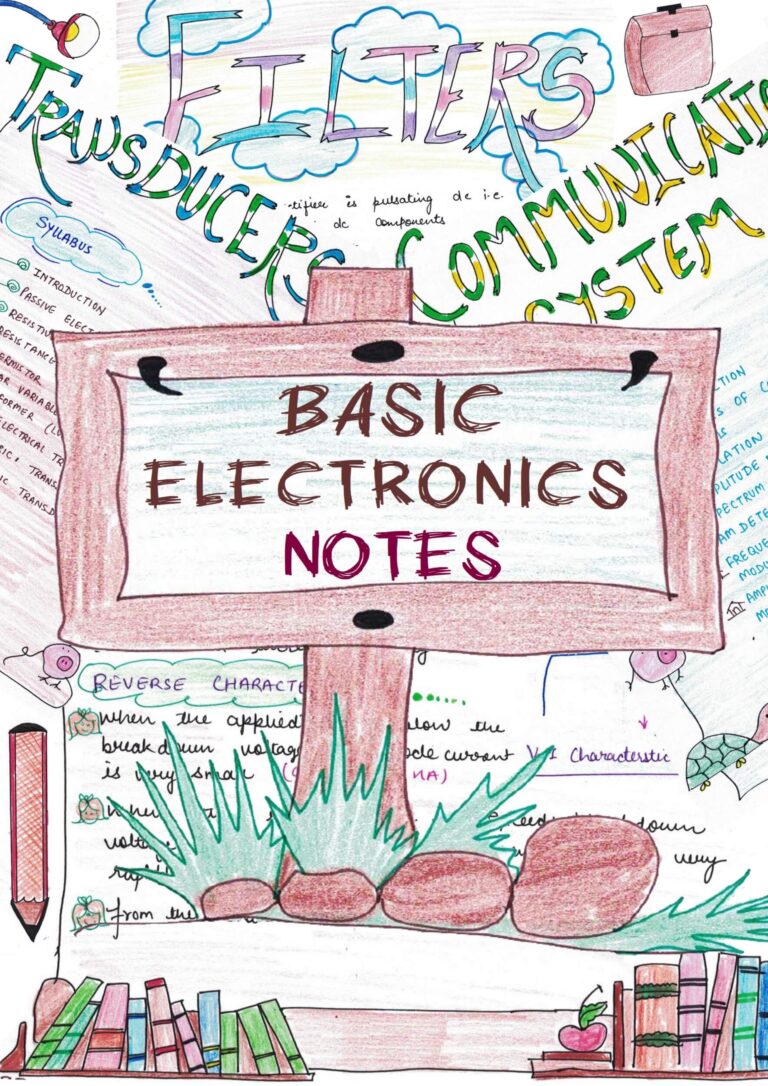 FILTERS
TRANSDUCERS
COMMUNICATIO
SYSTEM
tifier is pulsating dc i.e.
dc Components
SYLLABUS
INTRODUCTION
PASSIVE ELECT
RESISTIV
RESISTANCE
ERMISTOR
AR VARIABL
FORMER (L
ELECTRICAL TR
RIC, TRANS
IC TRANSD
BASIC
ELECTRONICS
NOTES
TION
S OF C
LATION
PLITUDE
PECTRUM
AM DETE
FREQUE
MODU
AMP
REVERSE CHARACTE
When the applied low the
breakdown voltage ode current
is very small NA)
V-I Characterstic
down
volta very
rap
from the